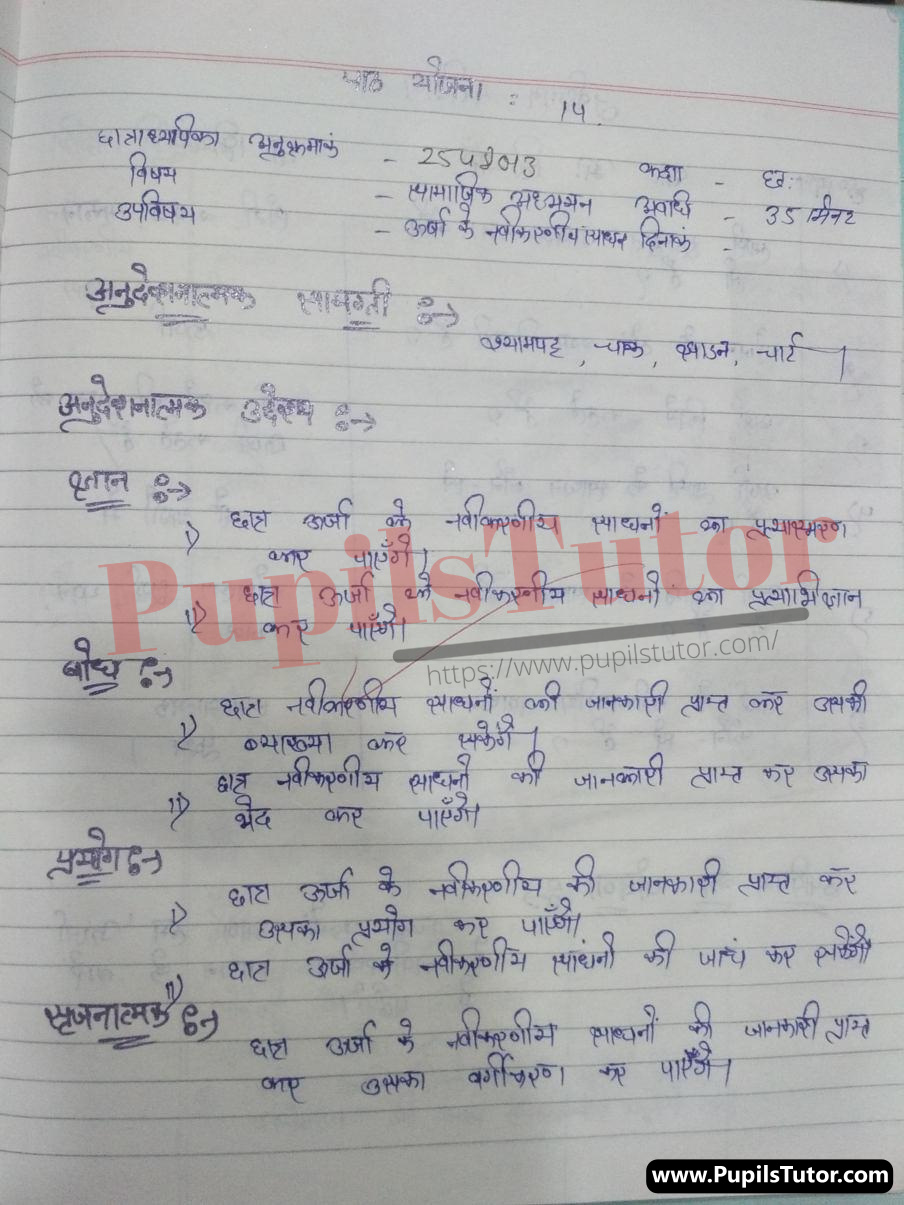 पाठ योजना : 14.
छात्राध्यापिका अनुक्रमाकं - 2548013 कक्षा - छः
विषय - सामाजिक अध्ययन अवधि - 35 मिनट
उपविषय - ऊर्जा के नवीकरणीय साधन दिनाकं -
अनुदेशनात्मक सामग्री :->
श्यामपट्ट, चाक, झाडन, चार्ट।
अनुदेशनात्मक उद्देश्य :->
ज्ञान :->
1) छात्र ऊर्जा के नवीकरणीय साधनों का प्रत्यास्मरण
कर पाएँगे।
11) छात्र ऊर्जा के नवीकरणीय साधनों का प्रत्याभिज्ञान
कर पाएँगे।
PupilsTutor
https://www.pupilstutor.com/
बोध :->
1) छात्र नवीकरणीय साधनों की जानकारी प्राप्त कर उसकी
व्याख्या कर सकेगें।
11) छात्र नवीकरणीय साधनों की जानकारी प्राप्त कर उसका
भेद कर पाएँगे।
प्रयोग :->
1) छात्र ऊर्जा के नवीकरणीय की जानकारी प्राप्त कर
उसका प्रयोग कर पाएँगे।
11) छात्र ऊर्जा के नवीकरणीय सांधनो की जाचं कर सकेंगे
सृजनात्मक :->
छात्र ऊर्जा के नवीकरणीय साधनों की जानकारी प्राप्त
कर उसका वर्गीकरण कर पाएँगे।
www.PupilsTutor.com